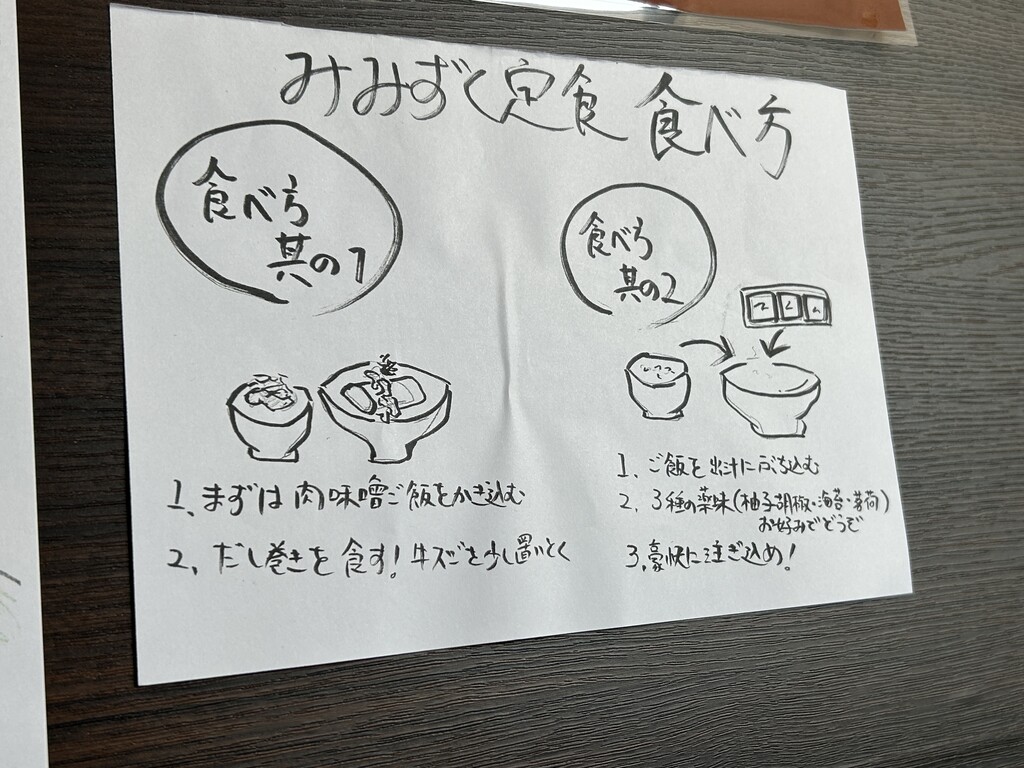 みみずく定食 食べ方
食べ方
其の1
1、まずは肉味噌ご飯をかき込む
2、だし巻きを食す！牛スジを少し置いとく
食べ方
其の2
1、ご飯を出汁にぶち込む
2、3種の薬味(柚子胡椒・海苔・茗荷)
お好みでどうぞ
3、豪快に注ぎ込め！